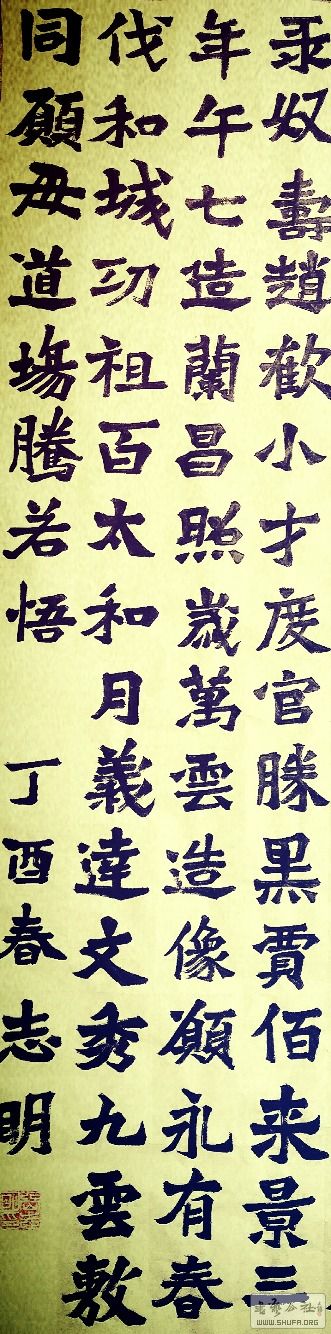 豕奴壽趙歡小才度官勝黑賈佰来景三
年午七造蘭昌照歲萬雲造像願永有春
伐和城功祖百太和月義達文秀九雲敷
同願毋道場騰若悟
丁酉春志明
WWW.SHUFA.ORG